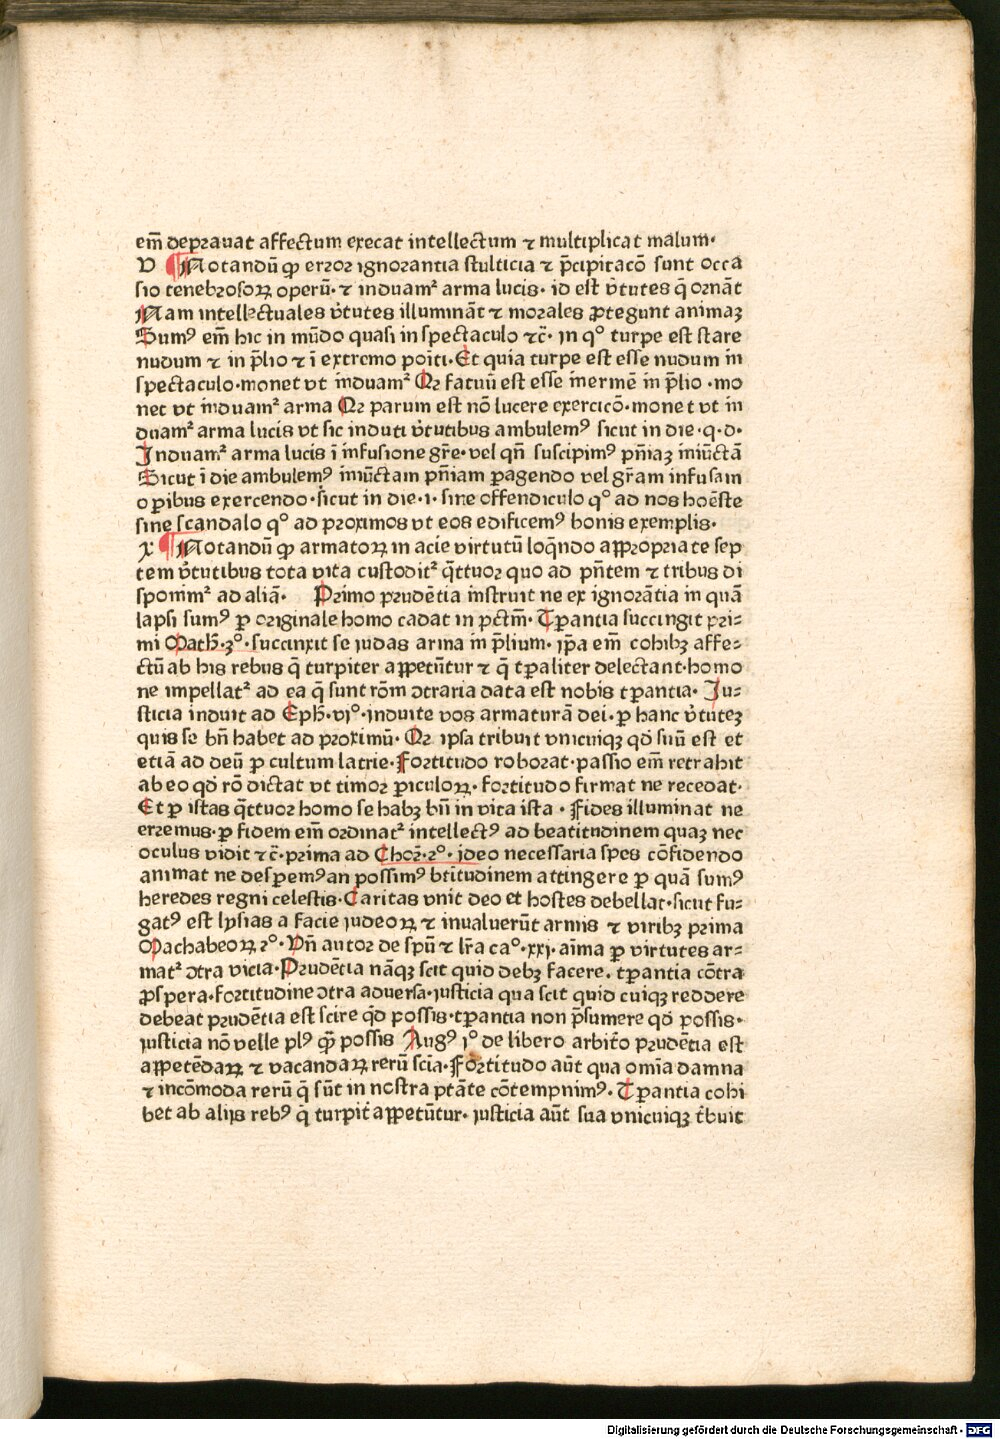 em̄ deprauat affectum execat intellectum ⁊ multiplicat malum·
V ¶ Notandū ꝙ error ignorantia stulticia ⁊ p̄cipitacō sunt occa
sio tenebrosoꝝ operū· ⁊ induamꝰ arma lucis· id est v̄tutes q̄ ornāt
Nam intellectuales v̄tutes illumināt ⁊ morales ꝓtegunt animaꝫ
Sumꝰ em̄ hic in mūdo quasi in spectaculo ⁊c̄· in qͦ turpe est stare
nudum ⁊ in p̄lio ⁊ ī extremo poīti· Et quia turpe est esse nudum in
spectaculo·monet vt induamꝰ Qꝛ fatuū est esse inermē in p̄lio ·mo
net vt induamꝰ arma Qꝛ parum est nō lucere exercicō·monet vt in
duamꝰ arma lucis vt sic induti v̄tutibus ambulemꝰ sicut in die·q·d·
Induamꝰ arma lucis ī infusione gr̄e· vel qn̄ suscipimꝰ pn̄iaꝫ iniūctā
Sicut ī die ambulemꝰ iniūctam pn̄iam ꝑagendo vel gr̄am infusam
oꝑibus exercendo·sicut in die·i· sine offendiculo qͦ ad nos hoēste
sine scandalo qͦ ad proximos vt eos edificemꝰ bonis exemplis·
X ¶ Notandū ꝙ armatoꝝ in acie virtutū loq̄ndo appropriate sep
tem v̄tutibus tota vita custoditꝰ q̄ttuor quo ad pn̄tem ⁊ tribus di
sponimꝰ ad aliā· Primo prudētia instruit ne ex ignorātia in quā
lapsi sumꝰ ꝑ originale homo cadat in pctm̄· Tꝑantia succingit pri-
mi Mach̄·3ͦ· succinxit se iudas arma in p̄lium· ip̄a em̄ cohibꝫ affe-
ctū ab his rebus q̄ turpiter appetūtur ⁊ q̄ tꝑaliter delectant·homo
ne impellatꝰ ad ea q̄ sunt rōm ꝯtraria data est nobis tꝑantia· Ju-
sticia induit ad Eph̄·viͦ·induite vos armaturā dei· ꝑ hanc v̄tuteꝫ
quis se bn̄ habet ad proximū· Qꝛ ipsa tribuit vnicuiqꝫ qd̄ suū est et
etiā ad deū ꝑ cultum latrie·Fortitudo roborat·passio em̄ retrahit
ab eo qd̄ rō dictat vt timor ꝑiculoꝝ· fortitudo firmat ne recedat·
Et ꝑ istas q̄ttuor homo se habꝫ bn̄ in vita ista · Fides illuminat ne
erremus·ꝑ fidem em̄ ordinatꝰ intellectꝰ ad beatitudinem quaꝫ nec
oculus vidit ⁊c̄·prima ad Chor̄·2ͦ· ideo necessaria spes cōfidendo
animat ne desꝑemꝰ an possimꝰ bt̄itudinem attingere ꝑ quā sumꝰ
heredes regni celestis·Caritas vnit deo et hostes debellat·sicut fu-
gatꝰ est lysias a facie iudeoꝝ ⁊ inualuerūt armis ⁊ viribꝫ prima
Machabeoꝝ 2ͦ· Vn̄ autor de spū ⁊ lr̄a caͦ·xxi· aīma ꝑ virtutes ar-
matꝰ ꝯtra vicia·Prudētia nāqꝫ scit quid debꝫ facere· tꝑantia cōtra
ꝓspera·fortitudine ꝯtra aduersa·iusticia qua scit quid cuiqꝫ reddere
debeat prudētia est scire qd̄ possis·tꝑantia non p̄sumere qd̄ possis·
iusticia nō velle plꝰ qꝫ possis Augꝰ iͦ de libero arbit̄o prudētia est
appetēdaꝝ ⁊ vacandaꝝ rerū scīa·Fortitudo aūt qua omīa damna
⁊ incōmoda rerū q̄ sūt in nostra ptāte cōtempnimꝰ· Tꝑantia cohi
bet ab alijs rebꝰ q̄ turpit̄ appetūtur· iusticia aūt sua vnicuiqꝫ t̄buit
Digitalisierung gefördert durch die Deutsche Forschungsgemeinschaft - DFG